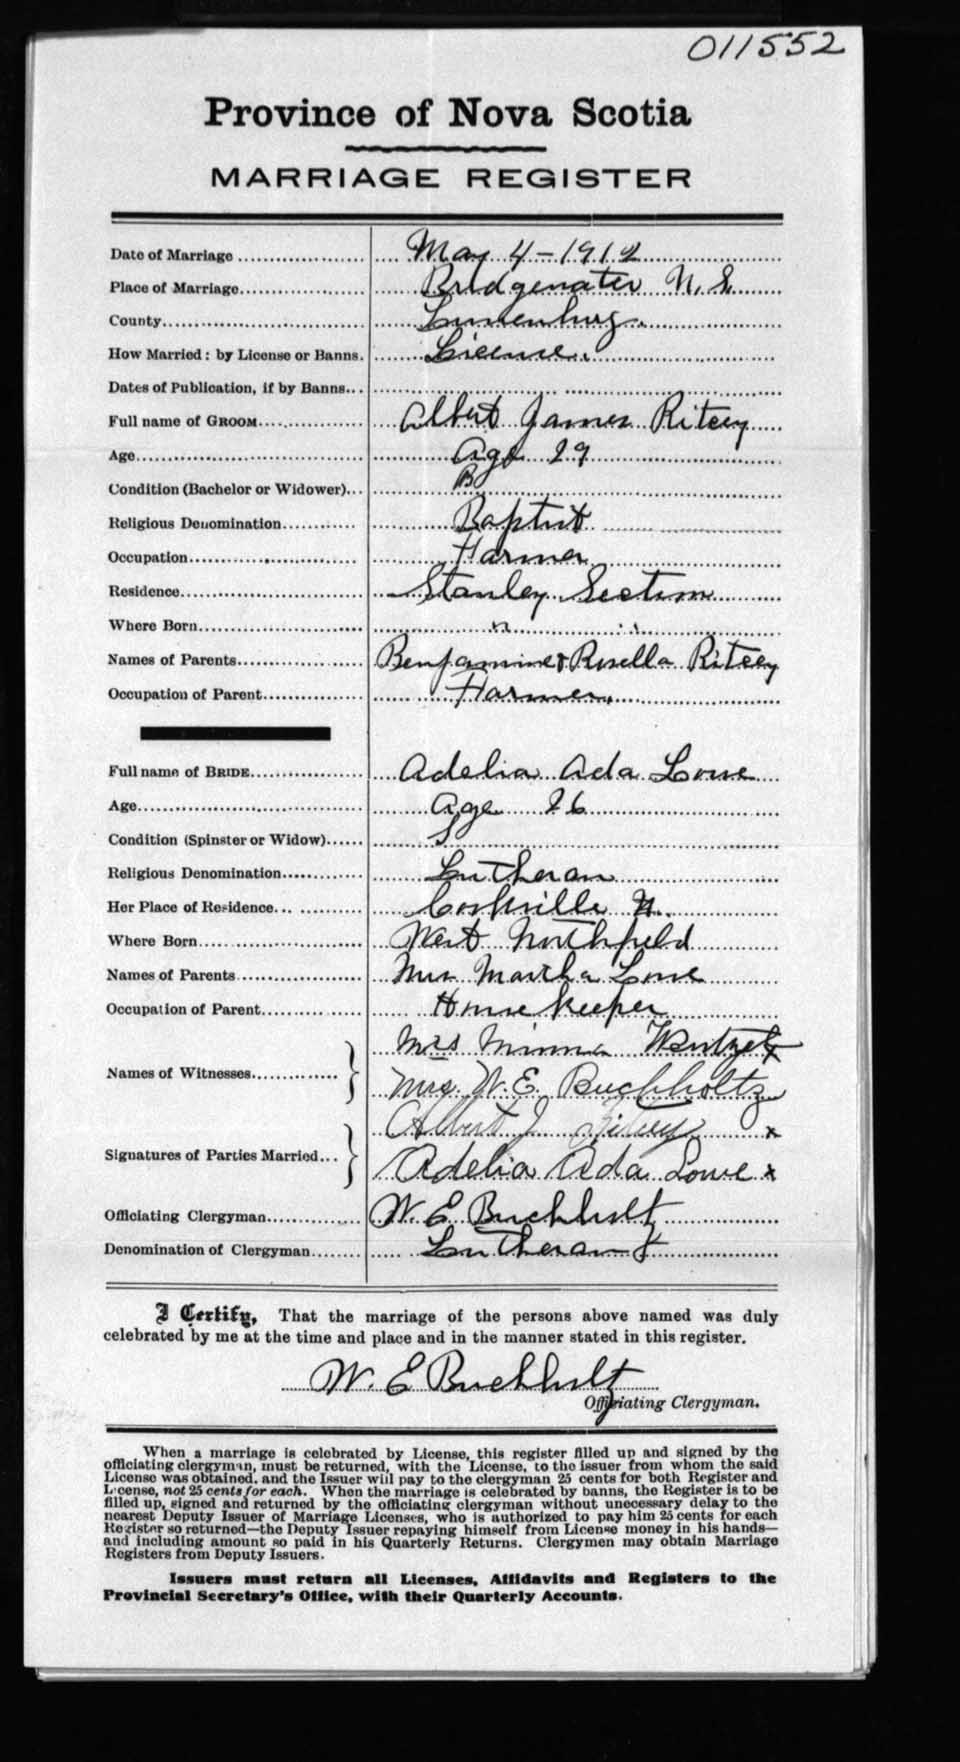 011552
Province of Nova Scotia
MARRIAGE REGISTER
Date of Marriage May 4 - 1912
Place of Marriage Bridgewater N.S.
County Lunenburg.
How Married: by License or Banns. License.
Dates of Publication, if by Banns
Full name of GROOM Albert James Ritcey
Age Age 29
Condition (Bachelor or Widower) B
Religious Denomination Baptist
Occupation Farmer
Residence Stanley Section
Where Born " "
Names of Parents Benjamin & Rosella Ritcey
Occupation of Parent Farmer.
Full name of BRIDE Adelia Ada Lowe
Age Age 26
Condition (Spinster or Widow) S
Religious Denomination Lutheran
Her Place of Residence N.
Where Born West Northfield
Names of Parents Mrs Martha Lowe
Occupation of Parent House Keeper
Names of Witnesses Mrs Minna Wentzel x
Mrs. W. E. Buchholtz
Signatures of Parties Married Albert J Ritcey x
Adelia Ada Lowe x
Officiating Clergyman W. E. Buchholtz
Denomination of Clergyman Lutheran
I Certify, That the marriage of the persons above named was duly
celebrated by me at the time and place and in the manner stated in this register.
W. E Buchholtz
Officiating Clergyman.
When a marriage is celebrated by License, this register filled up and signed by the
officiating clergyman, must be returned, with the License, to the issuer from whom the said
License was obtained, and the Issuer will pay to the clergyman 25 cents for both Register and
License, not 25 cents for each. When the marriage is celebrated by banns, the Register is to be
filled up, signed and returned by the officiating clergyman without unnecessary delay to the
nearest Deputy Issuer of Marriage Licenses, who is authorized to pay him 25 cents for each
Register so returned—the Deputy Issuer repaying himself from License money in his hands—
and including amount so paid in his Quarterly Returns. Clergymen may obtain Marriage
Registers from Deputy Issuers.
Issuers must return all Licenses, Affidavits and Registers to the
Provincial Secretary's Office, with their Quarterly Accounts.